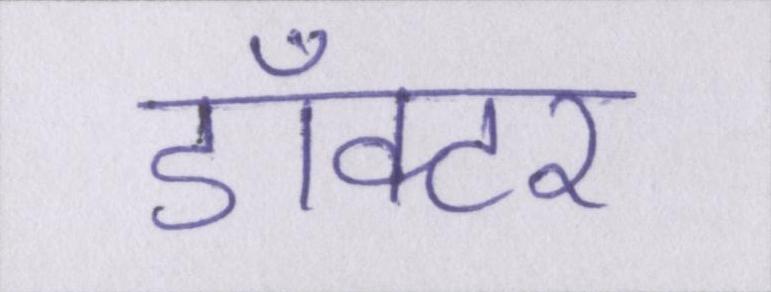 डाँक्टर